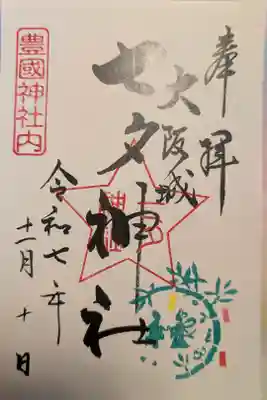 奉拝
大阪城
七夕神社
豊國神社内
令和七年
十一月十日